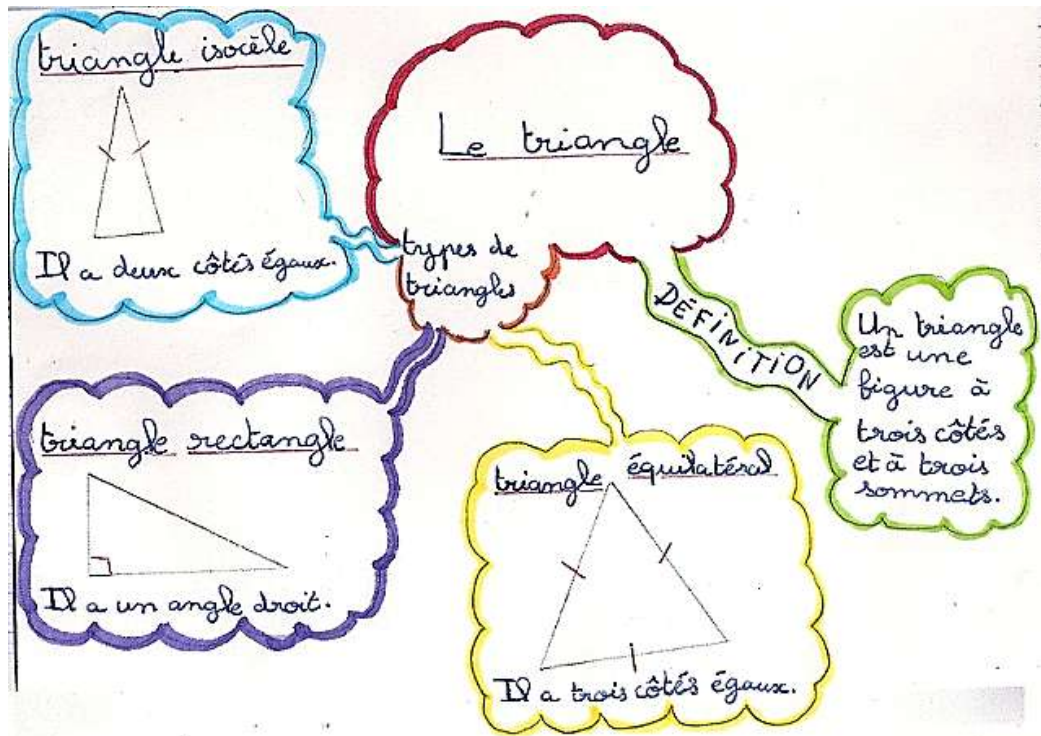 Le triangle
types de
triangles
triangle isocèle
Il a deux côtés égaux.
triangle rectangle
Il a un angle droit.
triangle équilatéral
Il a trois côtés égaux.
DÉFINITION
Un triangle
est une
figure à
trois côtés
et à trois
sommets.